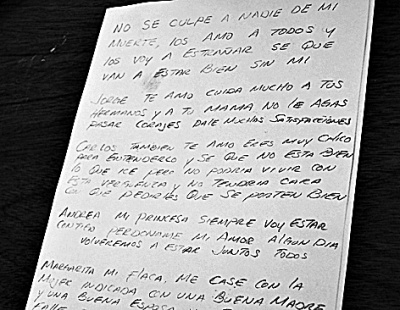 NO SE CULPE A NADIE DE MI
MUERTE, LOS AMO A TODOS Y
LOS VOY A ESTRAÑAR SE QUE
VAN A ESTAR BIEN SIN MI
JORGE TE AMO CUIDA MUCHO A TUS
HERMANOS Y A TU MAMA NO LE AGAS
PASAR CORAJES DALE MUCHAS SATISFACCIONES
CARLOS TAMBIEN TE AMO ERES MUY CHICO
PARA ENTENDERLO Y SE QUE NO ESTA BIEN
LO QUE ICE PERO NO PODRIA VIVIR CON
ESTA VERGUENZA Y NO TENDRIA CARA
QUE PEDIRLES QUE SE PORTEN BIEN
ANDREA MI PRINCESA SIEMPRE VOY ESTAR
CONTIGO PERDONAME MI AMOR ALGUN DIA
VOLVEREMOS A ESTAR JUNTOS TODOS
MARGARITA MI FLACA, ME CASE CON LA
MUJER INDICADA CON UNA BUENA MADRE
Y UNA BUENA ESPOSA